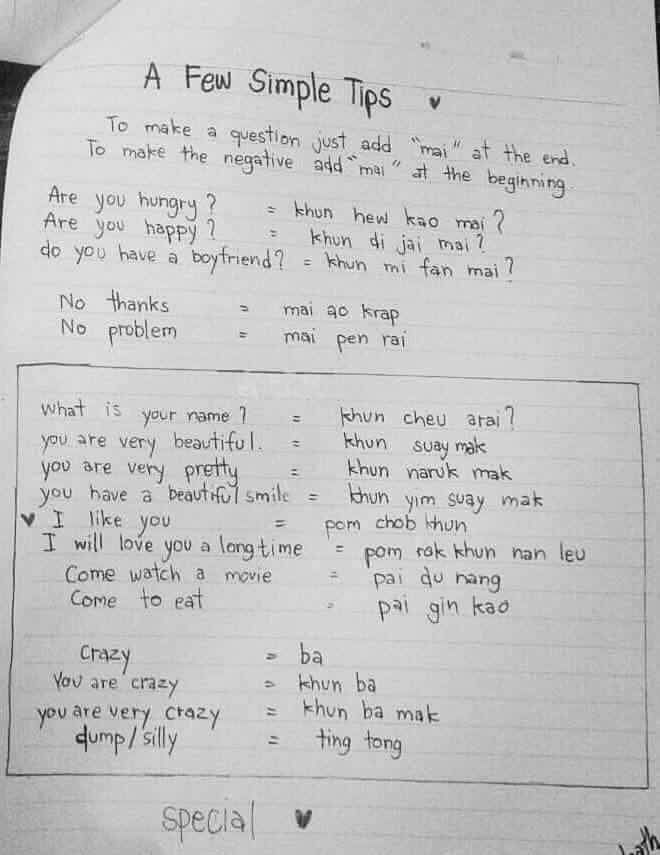 A Few Simple Tips ♥
To make a question just add "mai" at the end.
To make the negative add "mai" at the beginning.
Are you hungry? = khun hew kao mai?
Are you happy? = khun di jai mai?
do you have a boyfriend? = khun mi fan mai?
No thanks = mai ao krap
No problem = mai pen rai
what is your name? = khun cheu arai?
you are very beautiful. = khun suay mak
you are very pretty = khun naruk mak
you have a beautiful smile = khun yim suay mak
♥ I like you = pom chob khun
I will love you a long time = pom rak khun nan leu
Come watch a movie = pai du nang
Come to eat = pai gin kao
Crazy = ba
You are crazy = khun ba
you are very crazy = khun ba mak
dump/silly = ting tong
special ♥